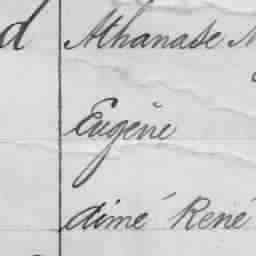 d Athanase
Eugène
aimé René